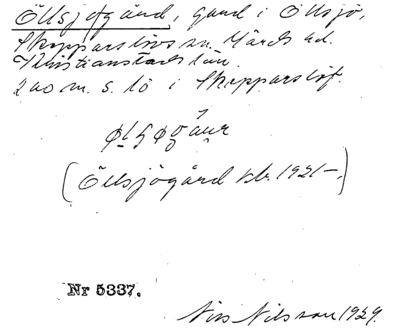 Öllsjögård, gård i Öllsjö,
Skepparslövs sn. Gärds hd.
Kristianstads län.
200 m. s. lö i Skepparslöf.
(Öllsjögård 1921–.)
Nr 5337.
Nils Nilsson 1929.